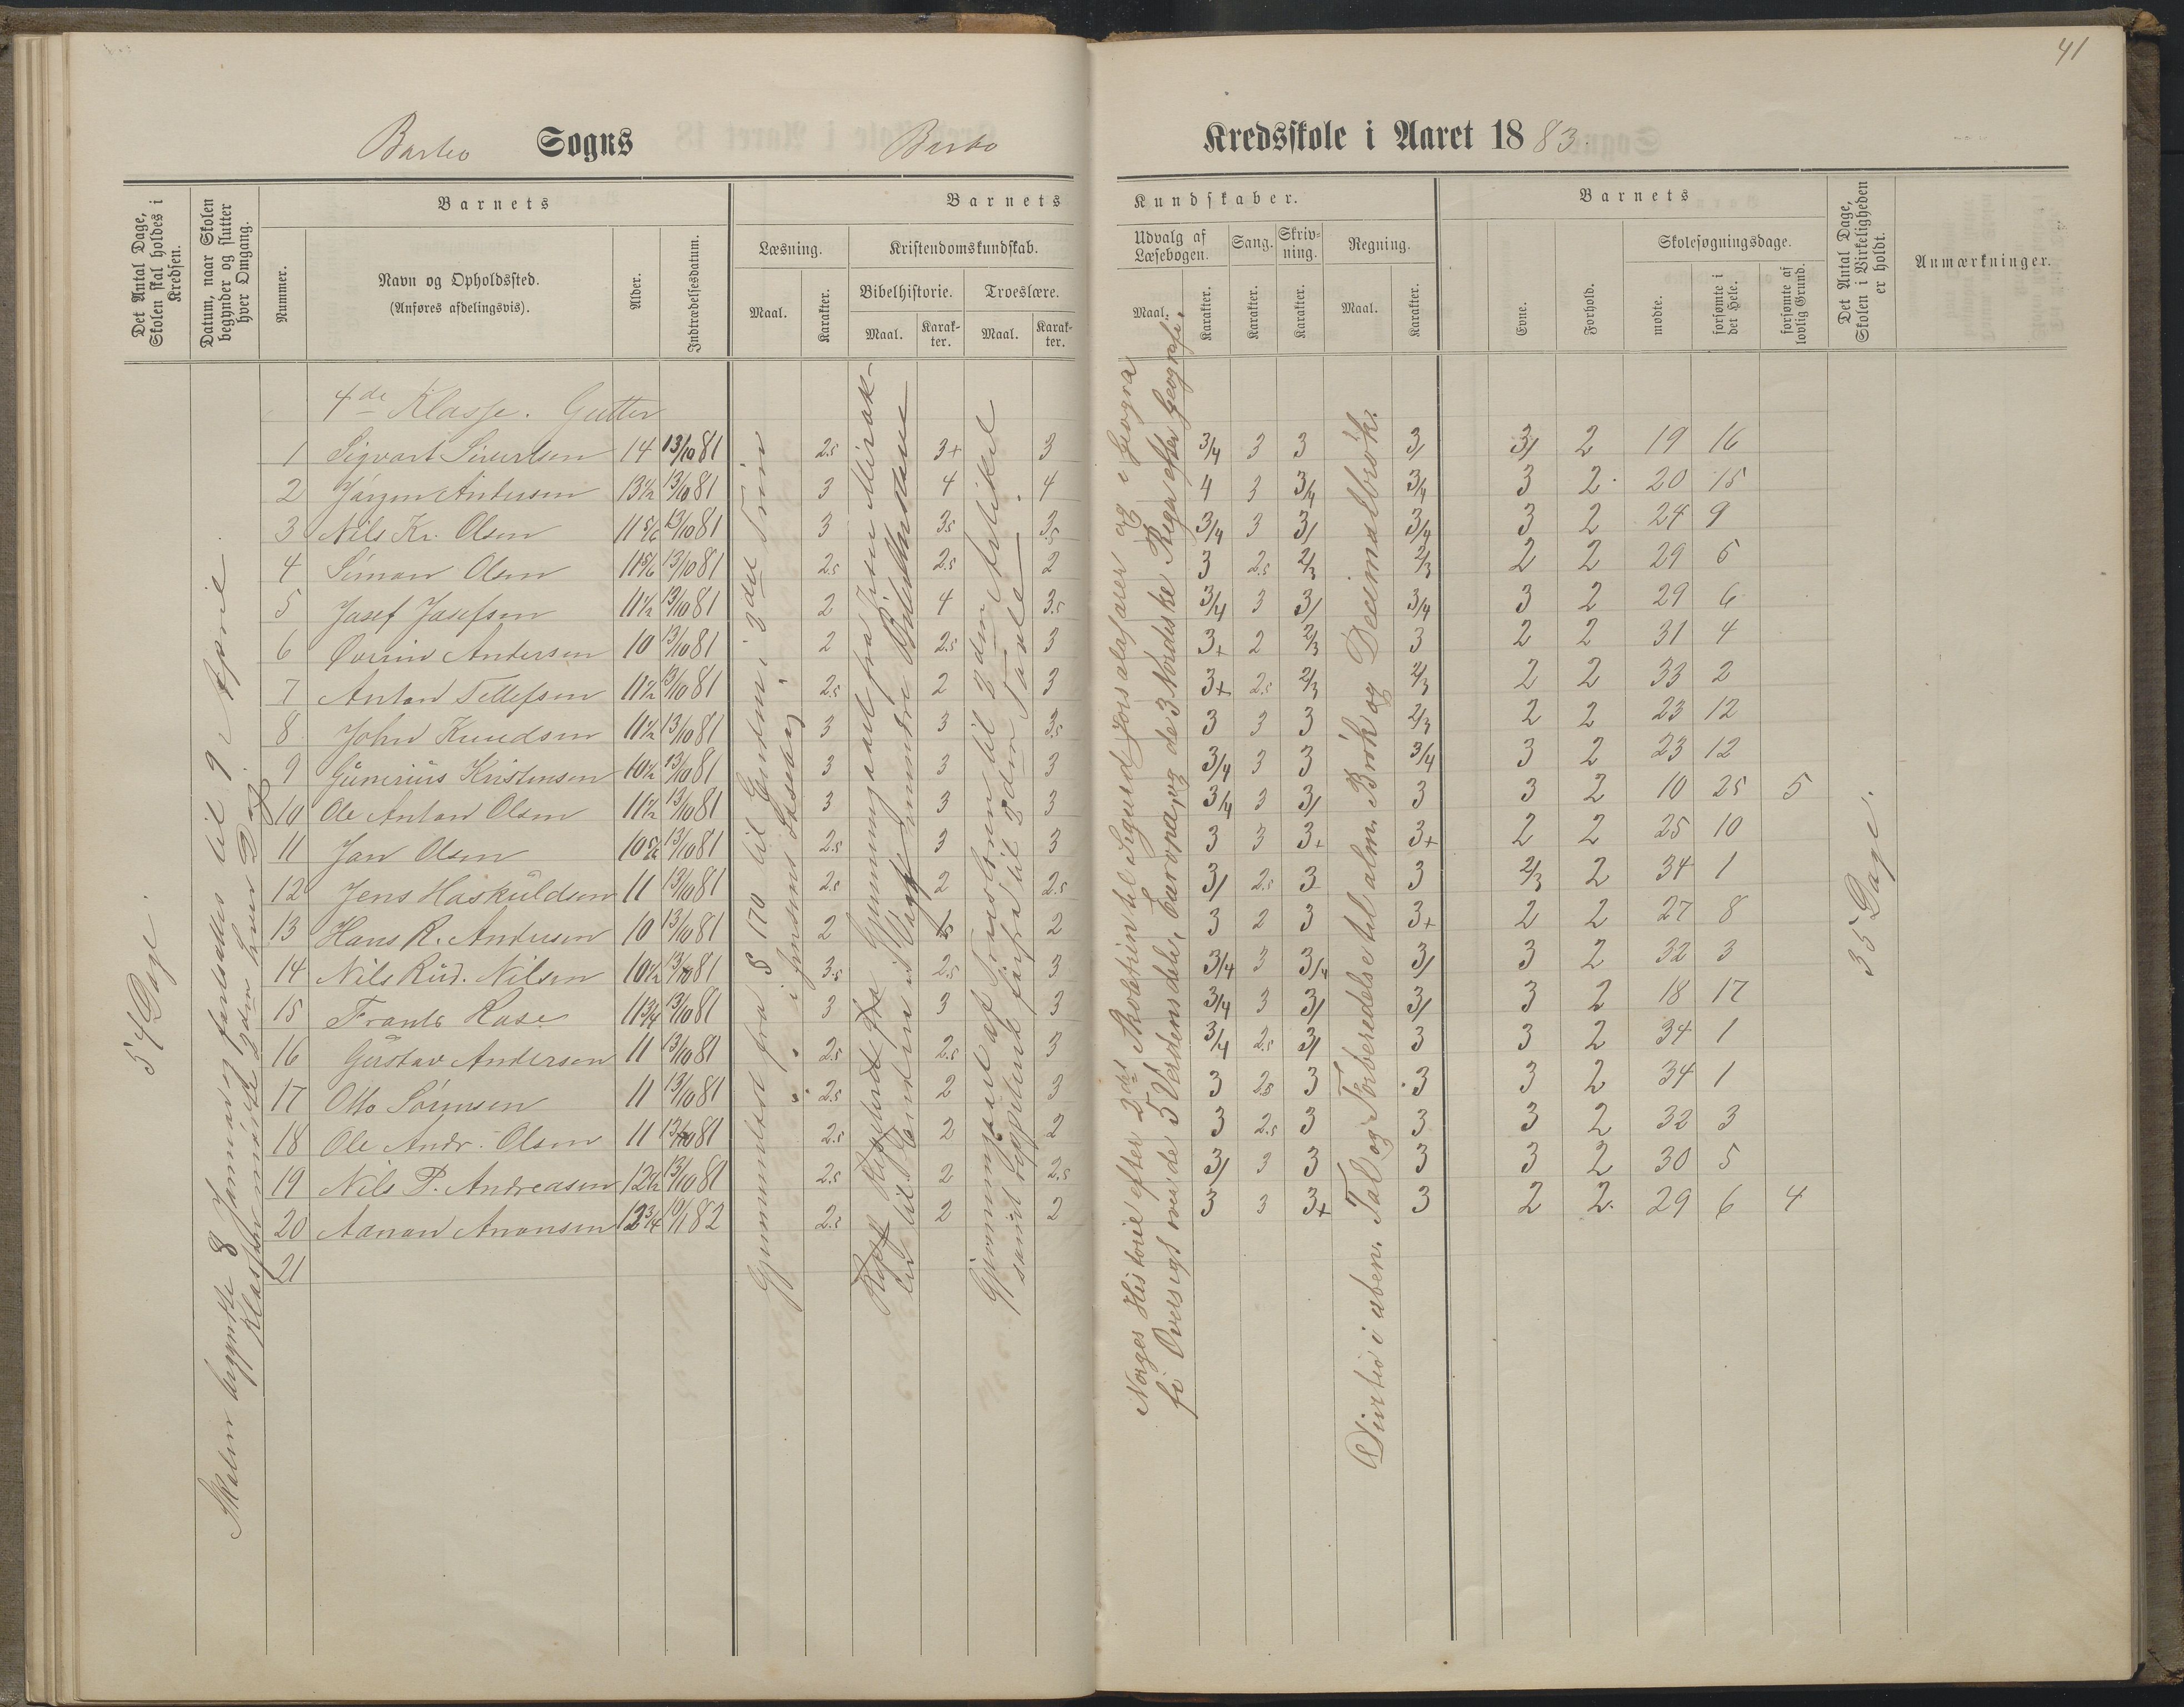 41
Barbo Sogns Barbo Kredsskole i Aaret 1883.
Det Antal Dage, Skolen skal holdes i Kredsen.
Datum, naar Skolen begynder og slutter hver Omgang.
Nummer.
Barnets
Navn og Opholdssted.
(Anføres afdelingsvis).
Alder.
Indtrædelsesdatum.
Barnets Kundskaber.
Læsning.
Maal.
Karakter.
Kristendomskundskab.
Bibelhistorie.
Maal.
Karakter.
Troeslære.
Maal.
Karakter.
Udvalg af Læsebogen.
Maal.
Karakter.
Sang.
Karakter.
Skrivning.
Karakter.
Regning.
Maal.
Karakter.
Barnets
Evne.
Forhold.
Skolesøgningsdage.
mødte.
forsømte i det Hele.
forsømte af lovlig Grund.
Det Antal Dage, Skolen i Virkeligheden er holdt.
Anmærkninger.
54 Dage.
Skolen begyndte 8 Januar og fortsattes til 9 April.
Klassen mødte 2den hver Dag
4de Klasse. Gutter
1 Sigvart Sivertsen 14 13/10 81 2.5 3+ 3 3/4 3 3 3/ 3/ 2 19 16
2 Jørgen Andersen 13½ 13/10 81 3 4 4 4 3 3/4 3/4 3 2 20 15
3 Nils Kr. Olsen 11 5/6 13/10 81 3 3.5 3.5 3/4 3 3/ 3/4 3 2 24 9
4 Simon Olsen 11 5/6 13/10 81 2.5 2.5 2 3 2.5 2/3 2/3 2 2 29 6
5 Josef Josefsen 11½ 13/10 81 2 4 3.5 3/4 3 3/ 3/4 3 2 29 6
6 Øvrin Andersen 10 13/10 81 2 2.5 3 3+ 2 2/3 3 2 2 31 4
7 Anton Tellefsen 11½ 13/10 81 2.5 2 3 3+ 2.5 2/3 2/3 2 2 33 2
8 John Knudsen 11½ 13/10 81 3 3 3.5 3 3 3 2/3 2 2 23 12
9 Gunerius Kristensen 10½ 13/10 81 3 3 3 3/4 3 3 3/4 3 2 23 12
10 Ole Anton Olsen 11½ 13/10 81 3 3 3 3/4 3 3/ 3 3 2 10 25 5
11 Jan Olsen 10 5/6 13/10 81 2.5 3 3 3 3 3+ 3+ 2 2 25 10
12 Jens Haskuldsen 11 13/10 81 2.5 2 2.5 3/ 2.5 3 3 2/3 2 34 1
13 Hans R. Andersen 10 13/10 81 2 2 3 2 3 3+ 2 2 27 8
14 Nils Rud. Nilsen 10½ 13/10 81 3.5 2.5 3 3/4 3 3/4 3/ 3 2 32 3
15 Frants Rase 11¾ 13/10 81 3 3 3 3/4 3 3/ 3/ 3 2 18 17
16 Gustav Andersen 11 13/10 81 2.5 2.5 3 3/4 2.5 3/ 3 3 2 34 1
17 Otto Sørensen 11 13/10 81 2.5 2 3 3 2.5 3 3 3 2 34 1
18 Ole Andr. Olsen 11 13/10 81 2.5 2 2 3 2.5 3 3 3 2 32 3
19 Nils P. Andreasen 12½ 13/10 81 2.5 2 2.5 3/ 3 3 3 3 2 30 5
20 Aanon Anonsen 12¾ 10/1 82 2.5 2 2 3 3 3+ 3 2 2 29 6 4
21
Gjennemlæst fra § 170 til Enden i 3die Trin
i Jensens Læsebog.
Gjennemgaaet fra Jesu Mirakler til Enden
Gjennemgaaet af Troeslæren til 3dem Artikel
samt repeteret forfra til 2den Tavle.
Norges Historie efter 2det Skoletrin til Sigurd Jorsalafarer og i Geografi Oversigt over de 5 Verdensdele, Europa, og de 3 Nordiske Riger efter Geografi.
Divtio i uben. Tal og Forberedelse til alm. Brøk og Decimalbrøk.
35 Dage.